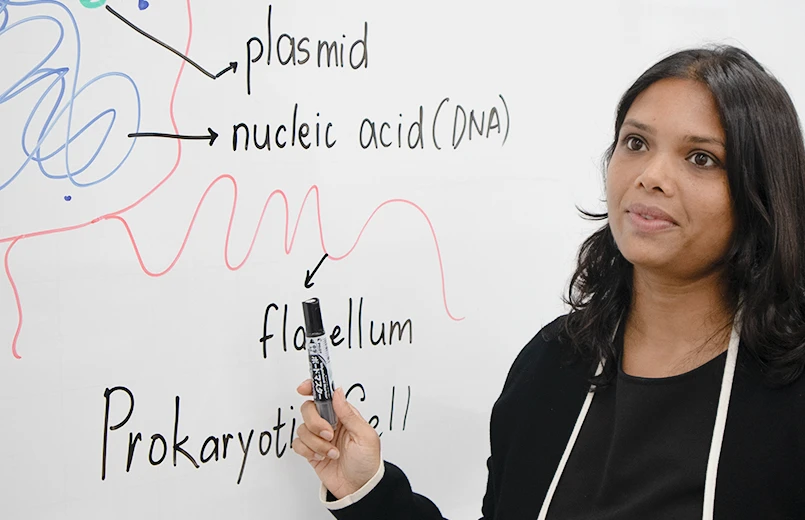 plasmid
nucleic acid (DNA)
flagellum
ボードマスター
Prokaryotic Cell